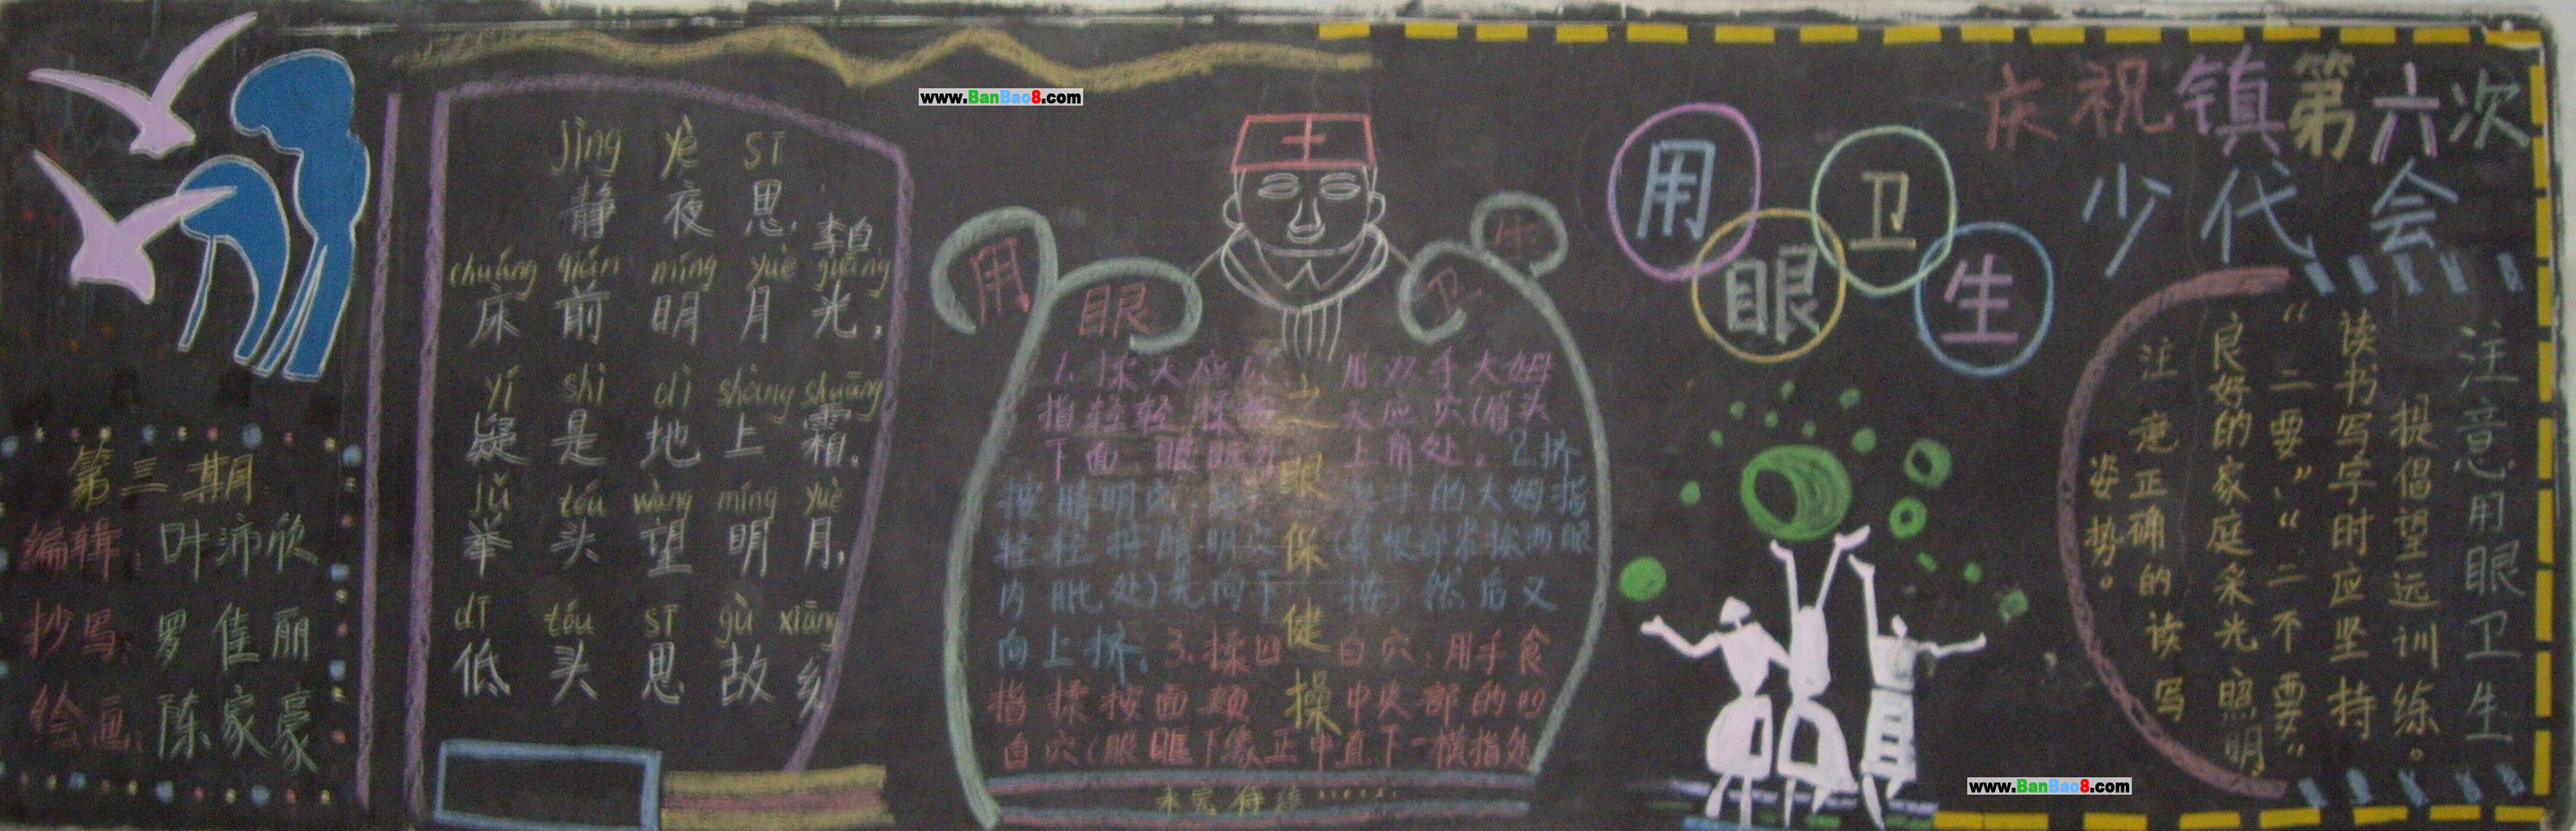 第三期
编辑：叶沛欣
抄写：罗佳丽
绘画：陈家豪
jìng yè sī
静夜思
李白
chuáng qián míng yuè guāng
床前明月光，
yí shì dì shàng shuāng
疑是地上霜。
jǔ tóu wàng míng yuè
举头望明月，
dī tóu sī gù xiāng
低头思故乡
www.BanBao8.com
用眼卫生
之眼保健操
1、揉天应穴：用双手大姆
指轻轻揉 天应穴(眉头
下面、眼眶外上角处。2.挤
按睛明穴 的大姆指
轻轻按睛明穴(鼻根部紧挨两眼
内眦处)先向下按，然后又
向上挤。3.揉四白穴：用手食
指揉按面颊中央部的四
白穴(眼眶下缘正中直下一横指处
未完待续······
用眼卫生
庆祝镇第六次
少代会
注意用眼卫生
提倡望远训练。
读书写字时应坚持
“二要”、“二不要”
良好的家庭采光照明
注意正确的读写
姿势。
www.BanBao8.com